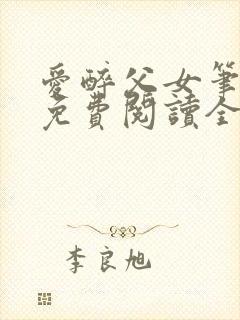 愛醉父女筆
免費閱讀全
李良旭